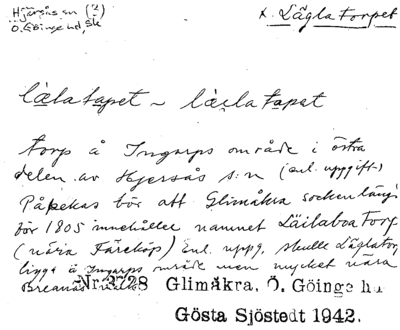 Hjärsås sn (?)
Ö. Göinge hd, Sk
x. Läglatorpet
lälatapet ~ läelatapet
torp å Ingarps område i östra
delen av Hjersås s:n (enl. uppgift)
Påpekas bör att Glimåkra sockenlängd
för 1805 innehåller namnet Läilaboa Torp
(nära Färeköp) Enl. uppg. skulle Läglatorp
ligga å Ingarps område men mycket nära
Breanäs
Nr 3728 Glimåkra, Ö. Göinge hd
Gösta Sjöstedt 1942.